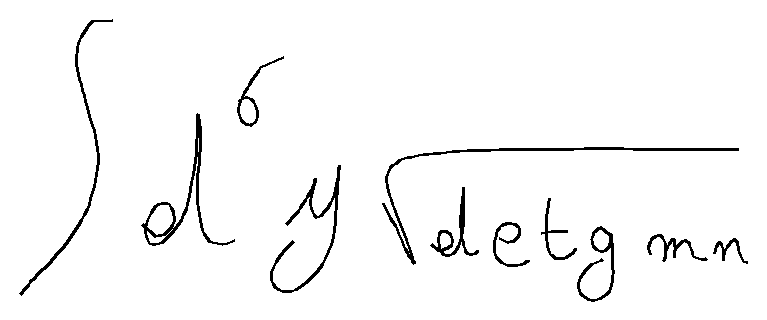 ∫ d⁶ y √(det g mn)